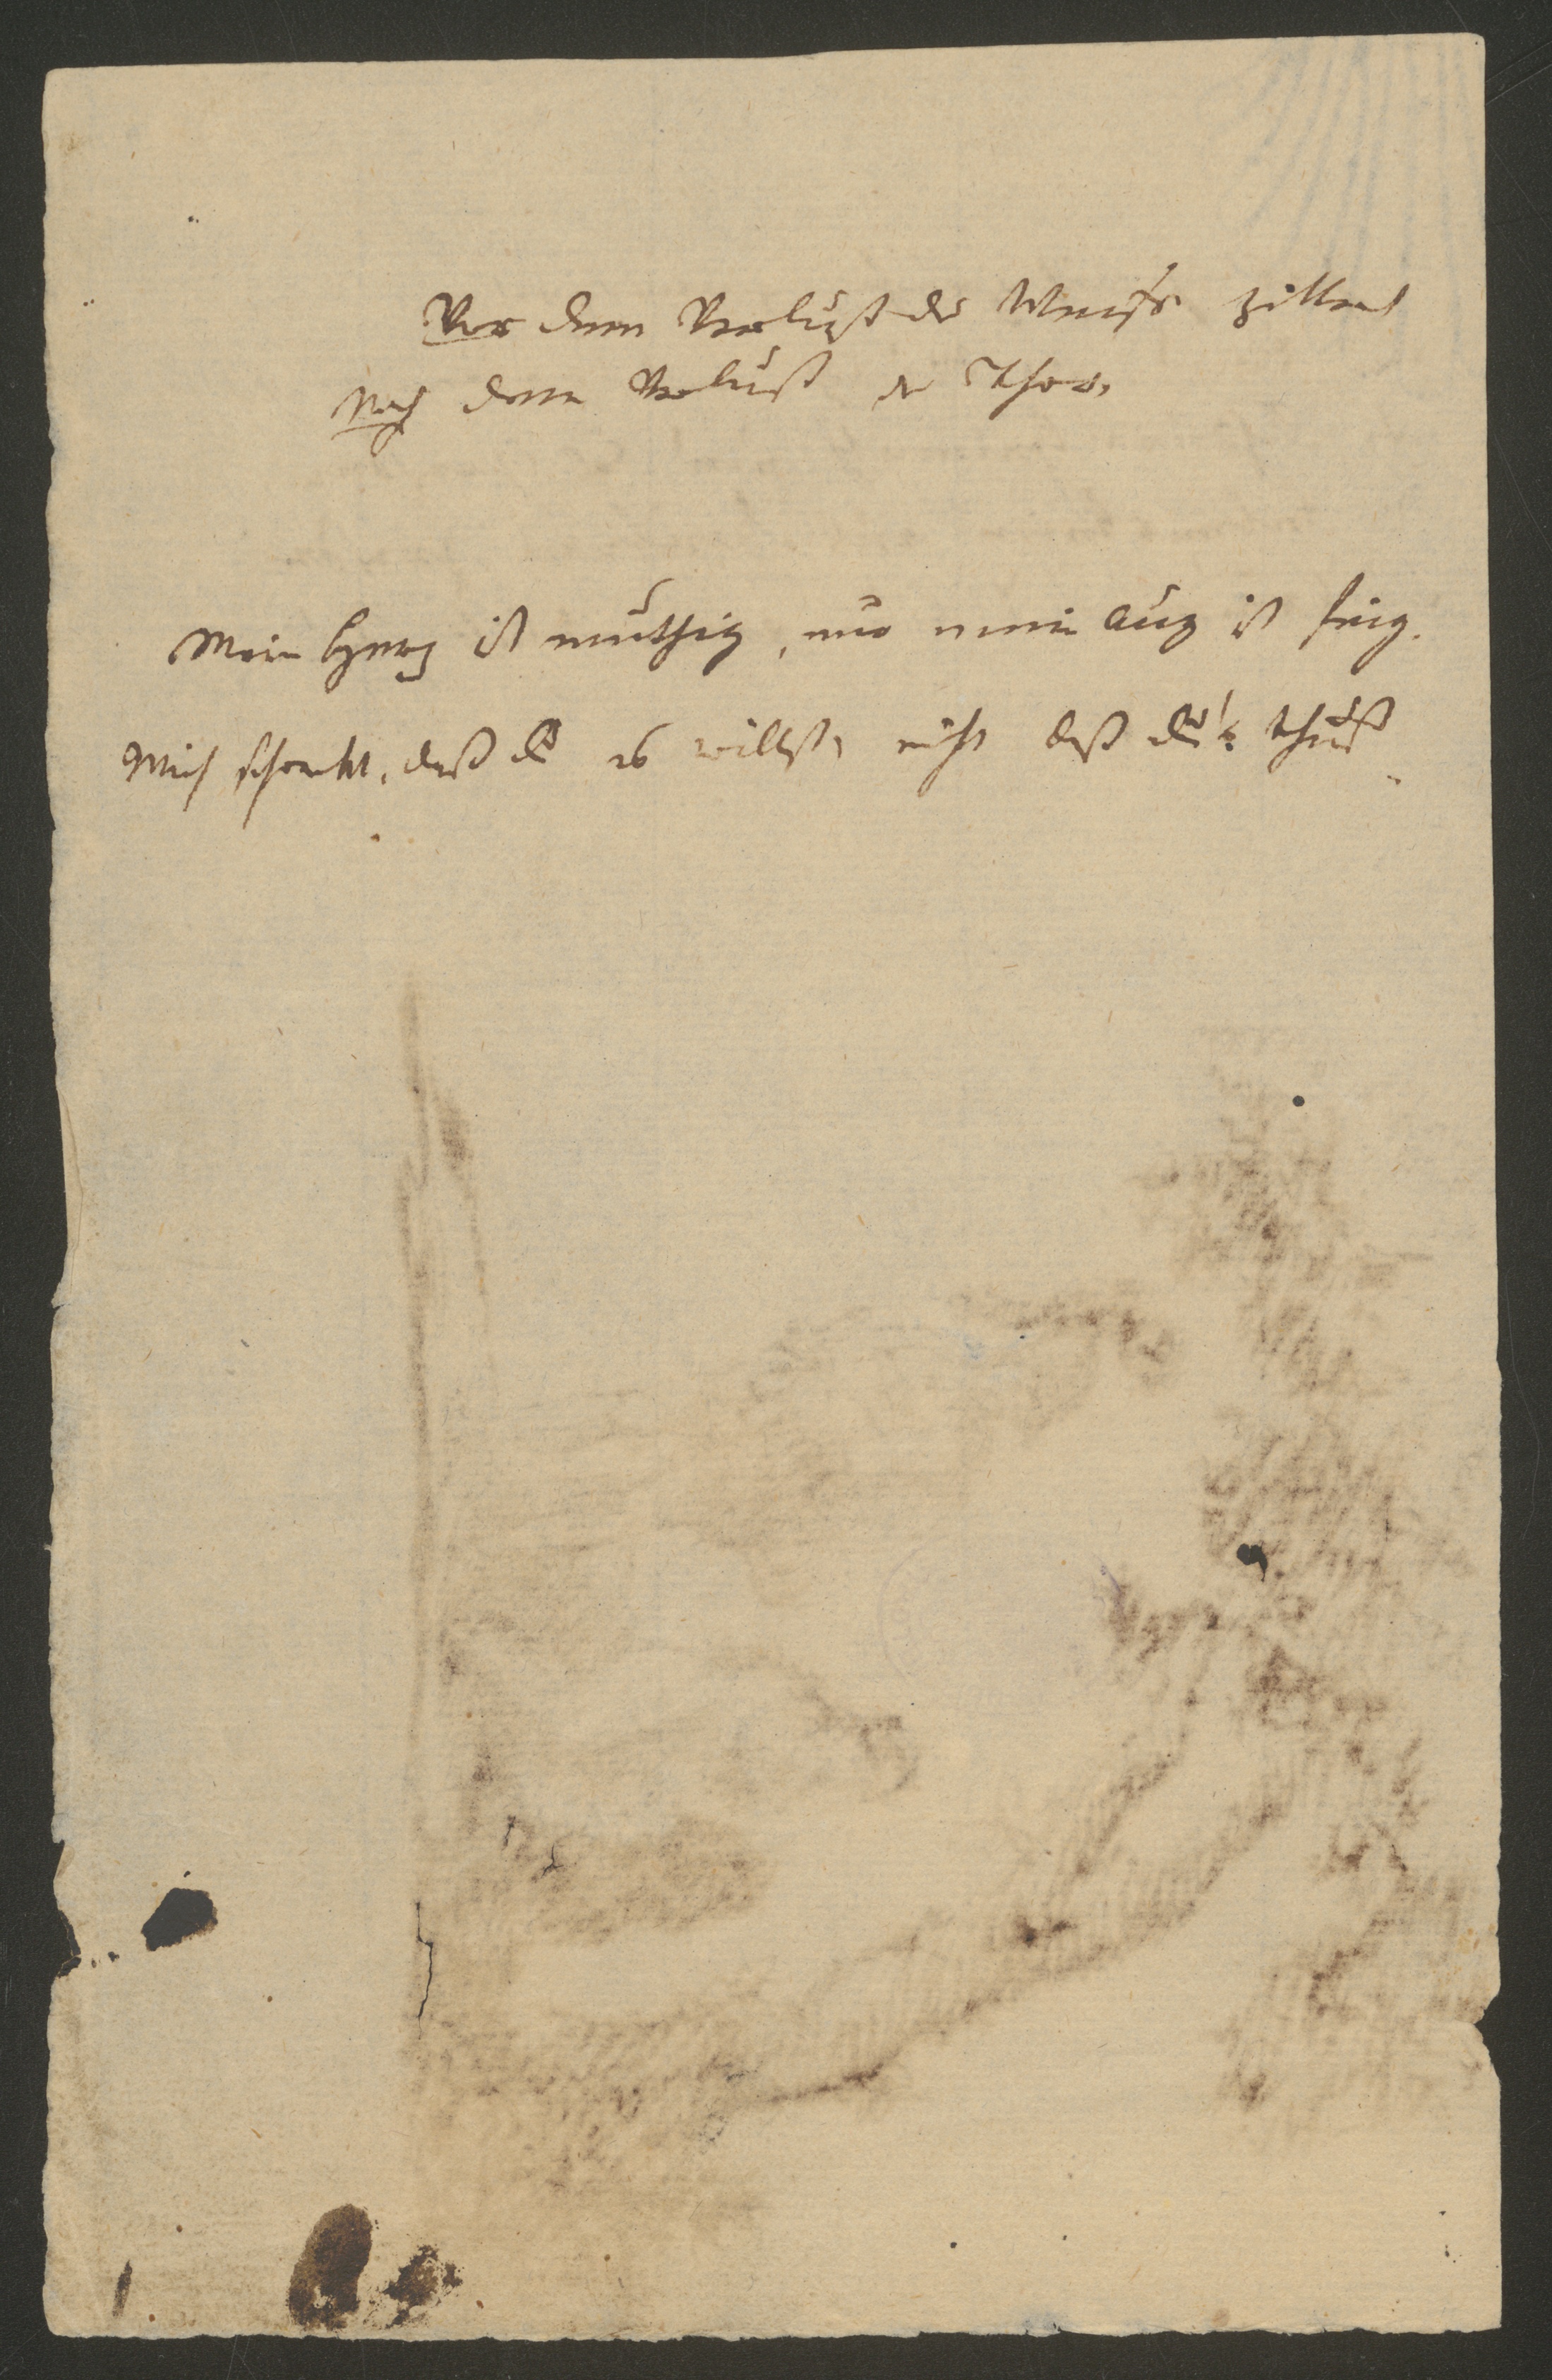 Vor dem Verlust der Weise zittert
Nach dem Verlust der Thor.
Mein Herz ist muthig, nur mein Aug ist feig.
Mich schreckt, daß du es willst, nicht daß du's thust